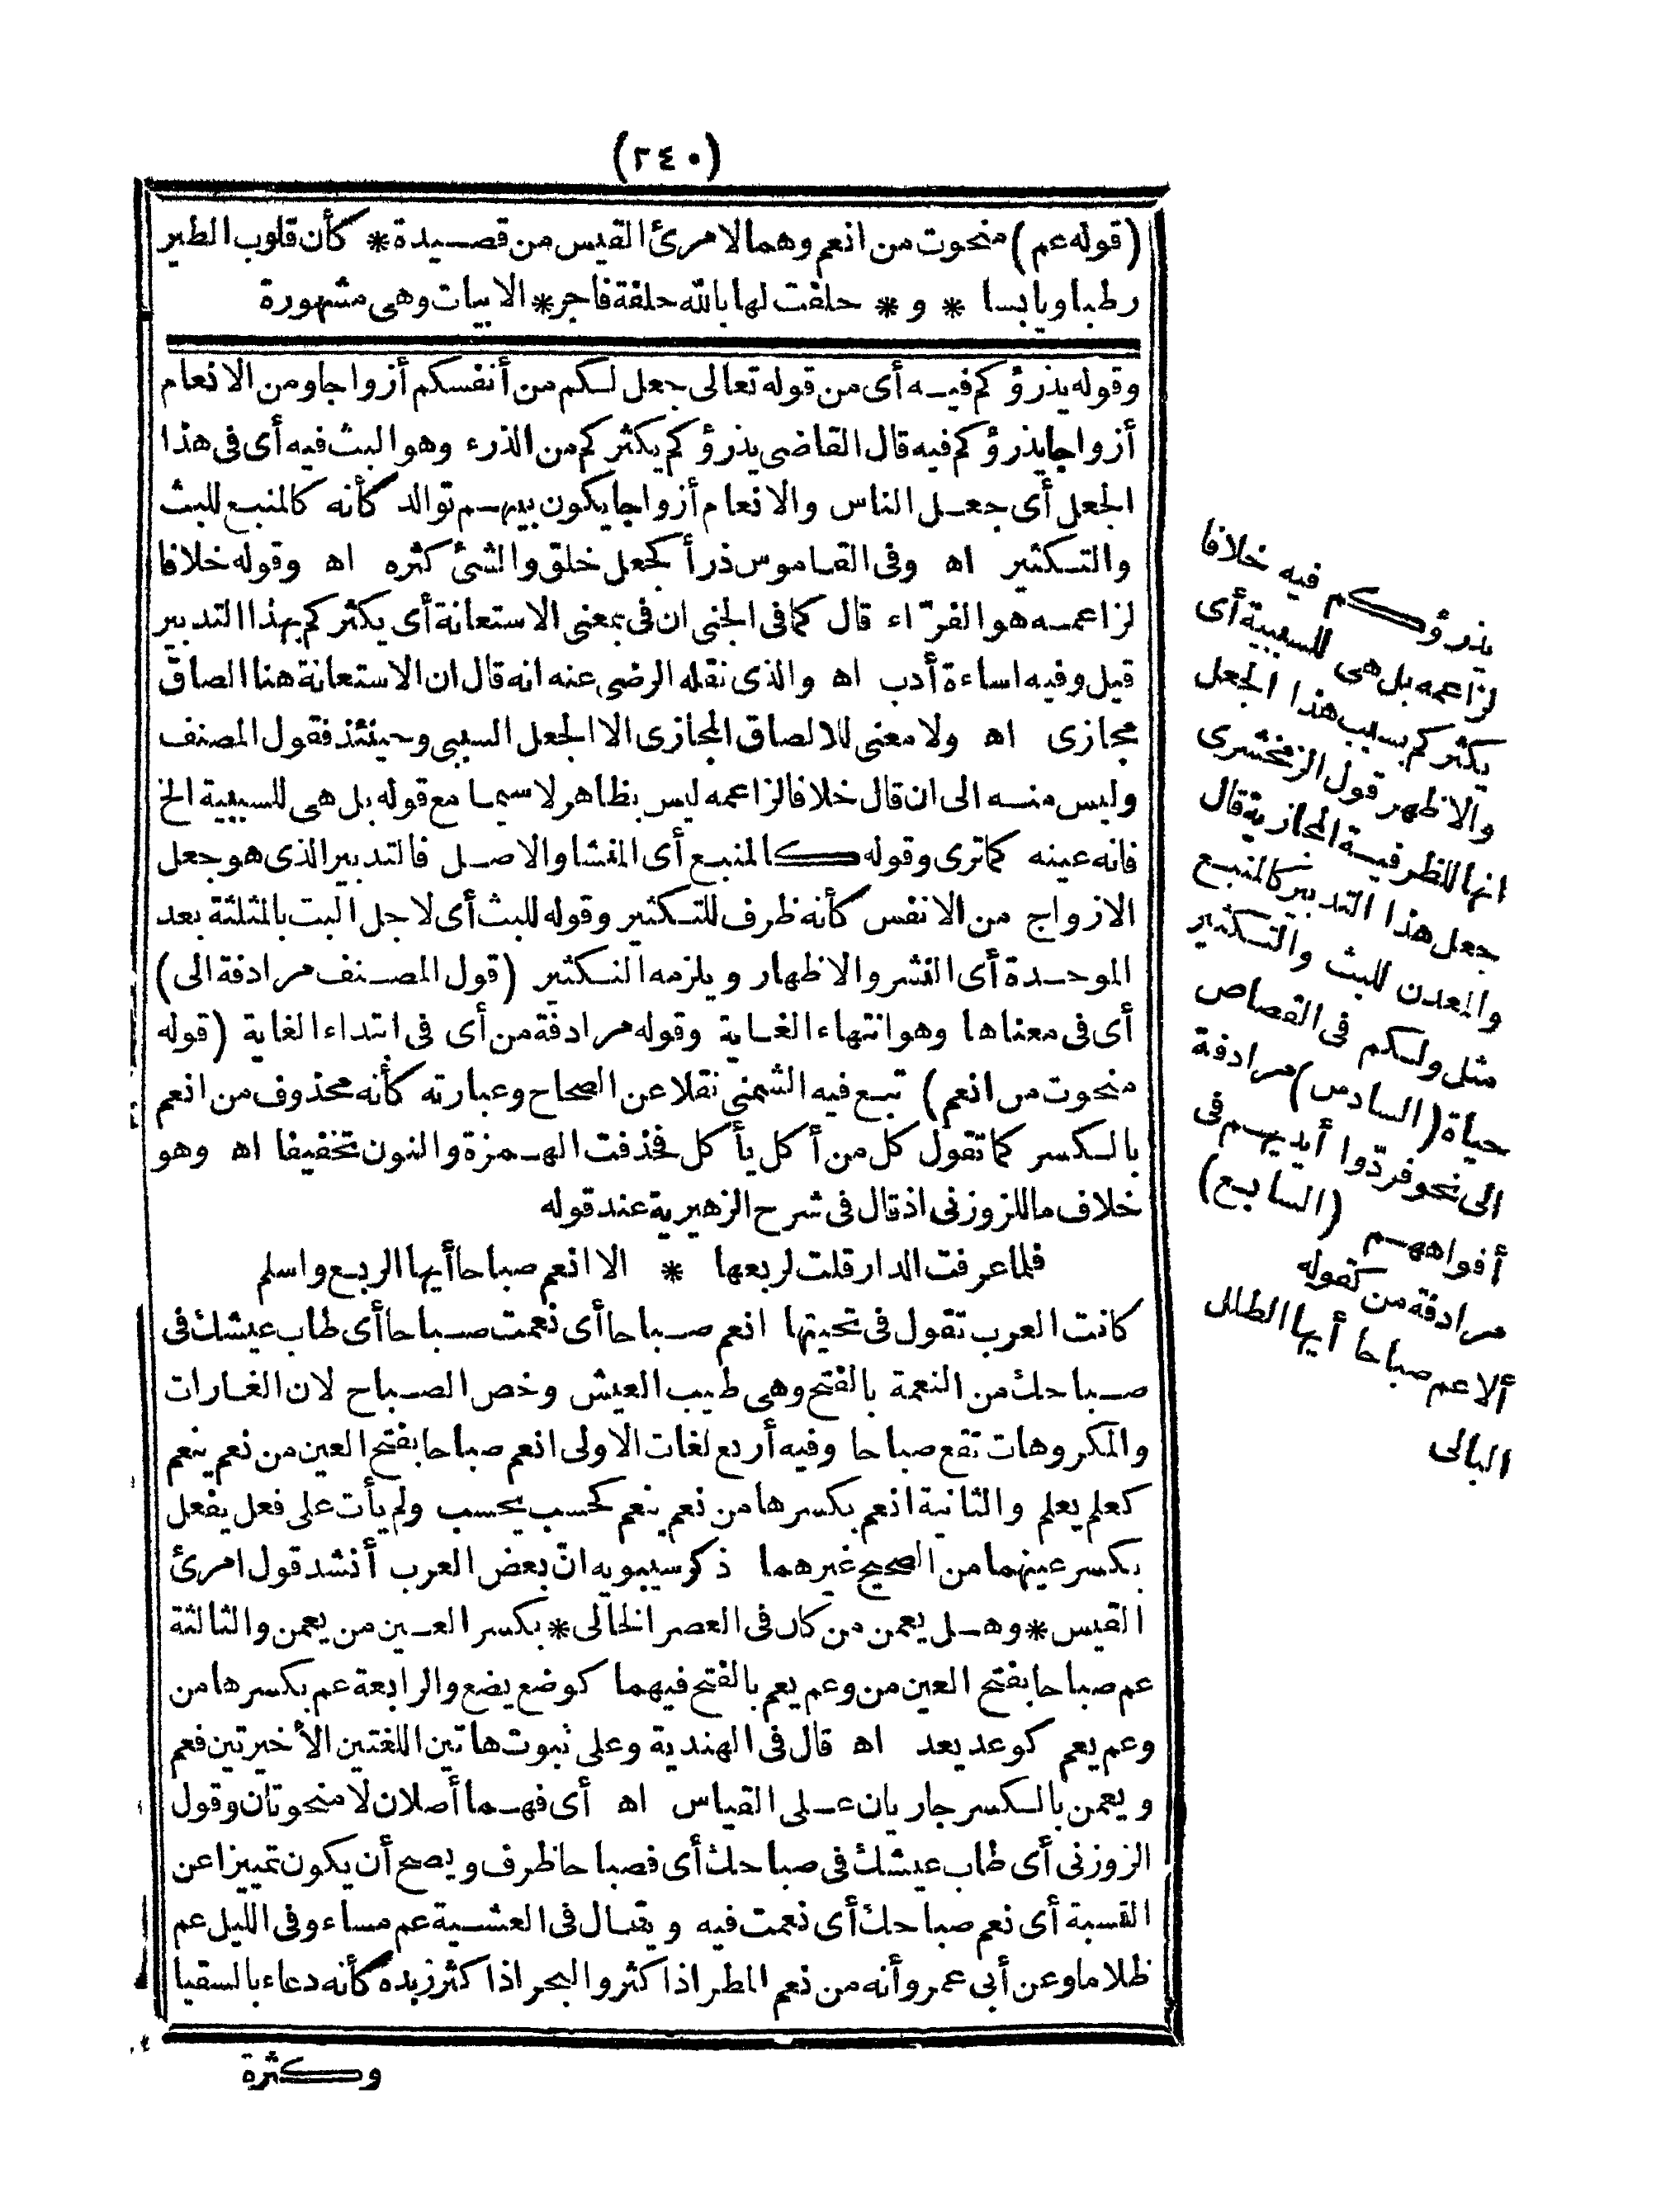 (٢٤٠)
(قوله عم) منحوت من انعم وهما لامرئ القيس من قصيدة * كأن قلوب الطير
رطبا ويابسا * و * حلفت لها بالله حلفة فاجر * الابيات وهى مشهورة
وقوله يذرؤكم فيه أى من قوله تعالى جعل لكم من أنفسكم أزواجا ومن الانعام
أزواجا يذرؤكم فيه قال القاضى يذرؤكم يكثركم من الذرء وهو البث فيه أى فى هذا
الجعل أى جعل الناس والانعام أزواجا يكون بينهم توالد كأنه كالمنبع للبث
والتكثير اه وفى القاموس ذرأ كجعل خلق والشئ كثره اه وقوله خلافا
لزاعمه هو الفرّاء قال كما فى الجنى ان فى بمعنى الاستعانة أى يكثركم بهذا التدبير
قيل وفيه اساءة أدب اه والذى نقله الرضى عنه انه قال ان الاستعانة هنا الصاق
مجازى اه ولا معنى للالصاق المجازى الا الجعل السببى وحينئذ فقول المصنف
وليس منه الى ان قال خلافا لزاعمه ليس بظاهر لا سيما مع قوله بل هى للسببية الخ
فانه عينه كما ترى وقوله كالمنبع أى المنشا والاصل فالتدبير الذى هو جعل
الازواج من الانفس كأنه ظرف للتكثير وقوله للبث أى لاجل البث بالمثلثة بعد
الموحدة أى النشر والاظهار ويلزمه التكثير (قول المصنف مرادفة الى)
أى فى معناها وهو انتهاء الغاية وقوله مرادفة من أى فى ابتداء الغاية (قوله
منحوت من انعم) تبع فيه الشمنى نقلا عن الصحاح وعبارته كأنه محذوف من انعم
بالكسر كما تقول كل من أكل يأكل فحذفت الهمزة والنون تخفيفا اه وهو
خلاف ما للزوزنى اذ قال فى شرح الزهيرية عند قوله
فلما عرفت الدار قلت لربعها * الا انعم صباحا أيها الربع واسلم
كانت العرب تقول فى تحيتها انعم صباحا أى نعمت صباحا أى طاب عيشك فى
صباحك من النعمة بالفتح وهى طيب العيش وخص الصباح لان الغارات
والمكروهات تقع صباحا وفيه أربع لغات الاولى انعم صباحا بفتح العين من نعم ينعم
كعلم يعلم والثانية انعم بكسرها من نعم ينعم كحسب يحسب ولم يأت على فعل يفعل
بكسر عينهما من الصحيح غيرهما ذكر سيبويه انّ بعض العرب أنشد قول امرئ
القيس * وهل يعمن من كان فى العصر الخالى * بكسر العين من يعمن والثالثة
عم صباحا بفتح العين من وعم يعم بالفتح فيهما كوضع يضع والرابعة عم بكسرها من
وعم يعم كوعد يعد اه قال فى الهندية وعلى ثبوت هاتين اللغتين الأخيرتين فعم
ويعمن بالكسر جاريان على القياس اه أى فهما أصلان لا منحوتان وقول
الزوزنى أى طاب عيشك فى صباحك أى فصباحا ظرف ويصح أن يكون تمييزا عن
النسبة أى نعم صباحك أى نعمت فيه ويقال فى العشية عم مساء وفى الليل عم
ظلاما وعن أبى عمرو أنه من نعم المطر اذا كثر والبحر اذا كثر زبده كأنه دعاء بالسقيا
وكثرة
يذرؤكم فيه خلافا
لزاعمه بل هى للسببية أى
يكثركم بسبب هذا الجعل
والاظهر قول الزمخشرى
انها للظرفية المجازية قال
جعل هذا التدبير كالمنبع
والمعدن للبث والتكثير
مثل ولكم فى القصاص
حياة (السادس) مرادفة
الى نحو فردّوا أيديهم فى
أفواههم (السابع)
مرادفة من كقوله
ألا عم صباحا أيها الطلل
البالى